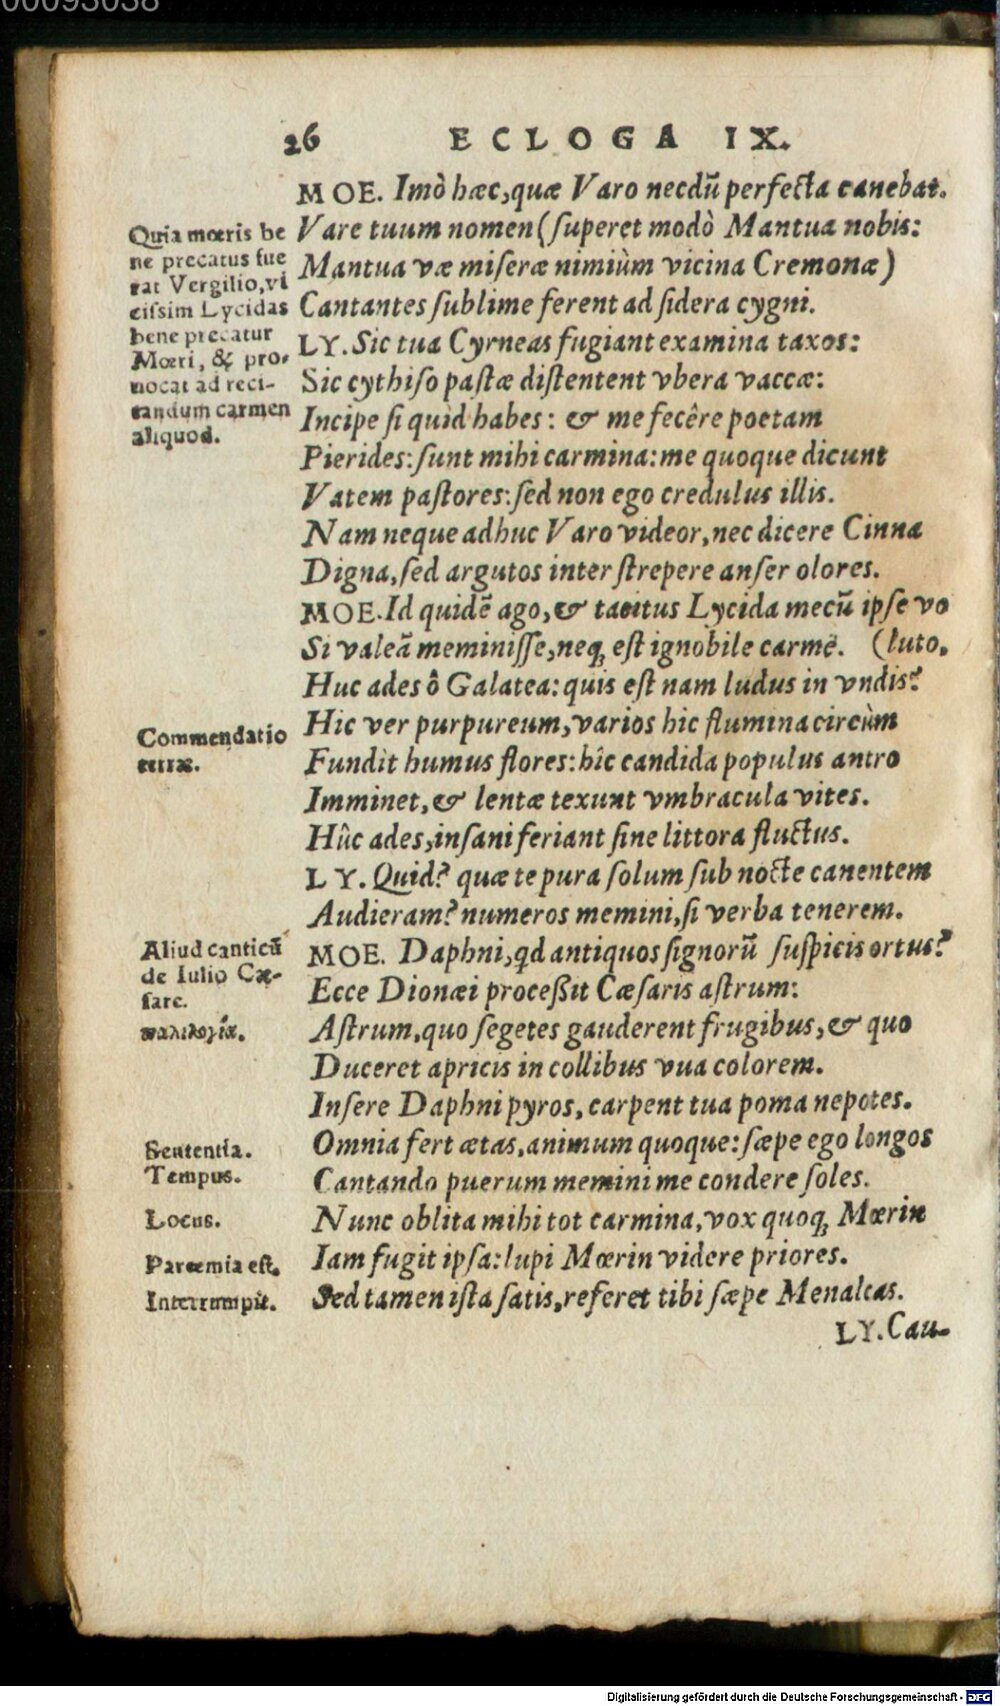 00093038
26 ECLOGA IX.
MOE. Imò hæc, quæ Varo necdũ perfecta canebat.
Vare tuum nomen (ſuperet modò Mantua nobis:
Mantua væ miſeræ nimiùm vicina Cremonæ)
Cantantes ſublime ferent ad ſidera cygni.
LY. Sic tua Cyrneas fugiant examina taxos:
Sic cythiſo paſtæ diſtentent vbera vaccæ:
Incipe ſi quid habes: & me fecêre poetam
Pierides: ſunt mihi carmina: me quoque dicunt
Vatem paſtores: ſed non ego credulus illis.
Nam neque adhuc Varo videor, nec dicere Cinna
Digna, ſed argutos inter ſtrepere anſer olores.
MOE. Id quidẽ ago, & tacitus Lycida mecũ ipſe vo
Si valeã meminiſſe, neq; eſt ignobile carmẽ. (luto.
Huc ades ô Galatea: quis eſt nam ludus in vndis?
Hic ver purpureum, varios hic flumina circùm
Fundit humus flores: hîc candida populus antro
Imminet, & lentæ texunt vmbracula vites.
Hûc ades, inſani feriant ſine littora fluctus.
LY. Quid? quæ te pura ſolum ſub nocte canentem
Audieram? numeros memini, ſi verba tenerem.
MOE. Daphni, qd antiquos ſignorũ ſuſpicis ortus?
Ecce Dionæi proceßit Cæſaris aſtrum:
Aſtrum, quo ſegetes gauderent frugibus, & quo
Duceret apricis in collibus vua colorem.
Inſere Daphni pyros, carpent tua poma nepotes.
Omnia fert ætas, animum quoque: ſæpe ego longos
Cantando puerum memini me condere ſoles.
Nunc oblita mihi tot carmina, vox quoq; Mœrin
Iam fugit ipſa: lupi Mœrin videre priores.
Sed tamen iſta ſatis, referet tibi ſæpe Menalcas.
LY. Cau-
Quia mœris be
ne precatus fue
rat Vergilio, vi
ciſsim Lycidas
bene precatur
Mœri, & pro-
uocat ad reci-
tandum carmen
aliquod.
Commendatio
terræ.
Aliud canticũ
de Iulio Cæ-
ſare.
παλιλογία.
Sententia.
Tempus.
Locus.
Parœmia eſt.
Interrumpit.
Digitalisierung gefördert durch die Deutsche Forschungsgemeinschaft - DFG